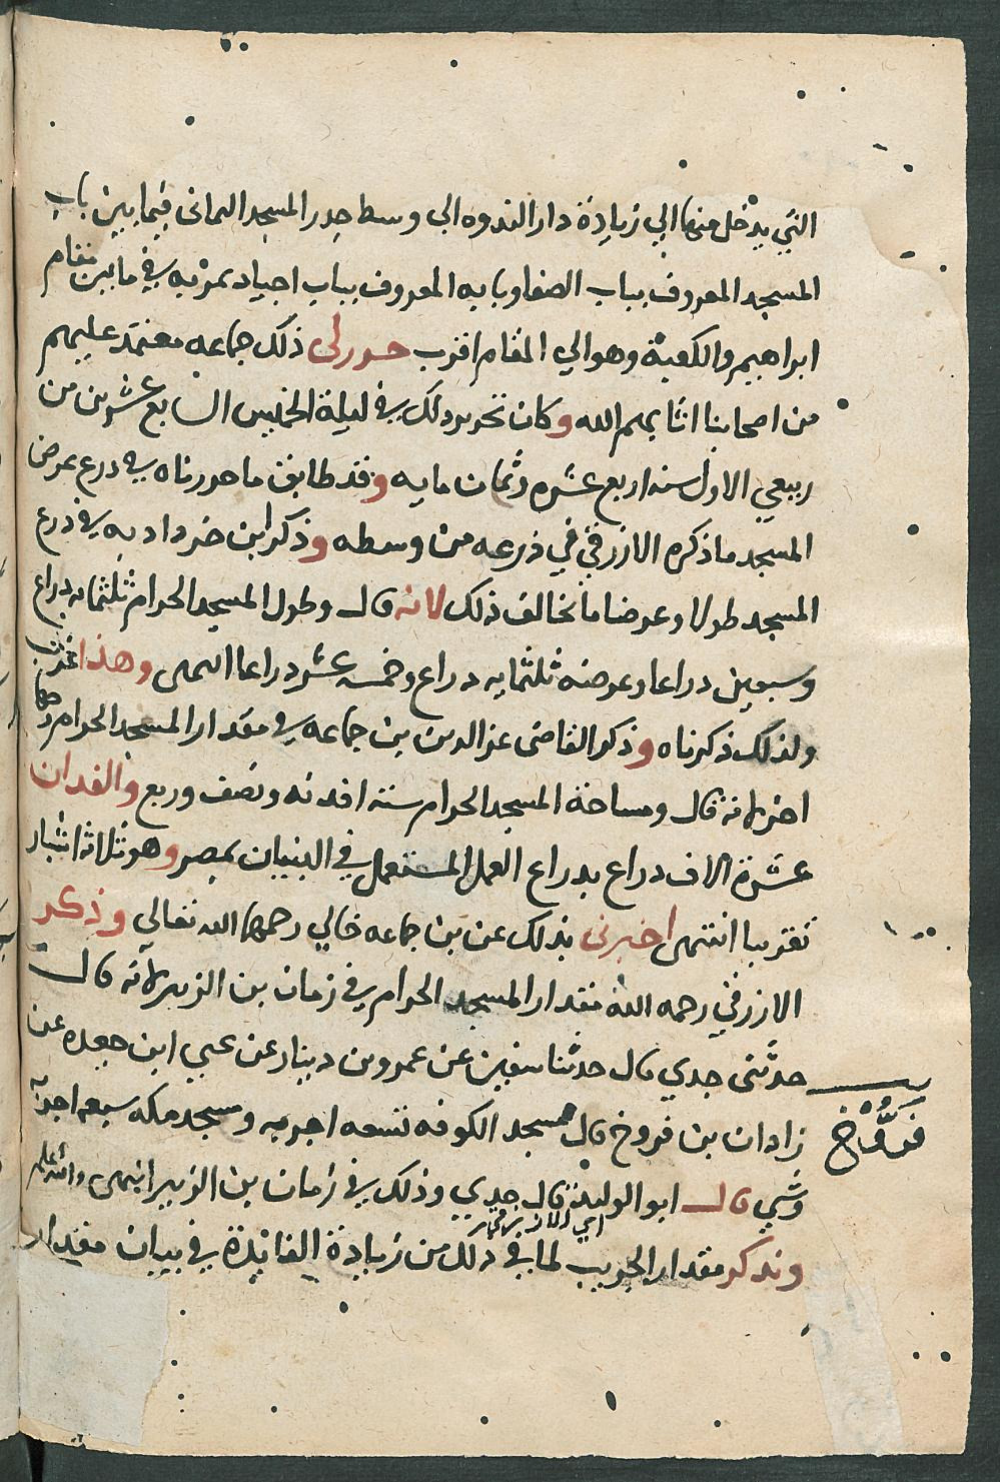 التي يدخل منها الي زيادة دار الندوه الي وسط جدر المسجد اليماني فيما بين باب
المسجد المعروف بباب الصفا وبابه المعروف بباب اجياد بمر به في ما بين مقام
ابراهيم والكعبة وهو الي المقام اقرب حرر لي ذلك جماعه معتمد عليهم
من اصحابنا اثابهم الله وكان تحرير ذلك في ليلة الخميس السابع عشرين من
ربيع الاول سنه اربع عشره وثمان مايه وقد طابق ما حررناه في درع عرض
المسجد ما ذكره الازرقي في ذرعه من وسطه وذكر ابن خردادبه في درع
المسجد طولا وعرضا ما يخالف ذلك لانه قال وطول المسجد الحرام ثلثمايه دراع
وسبعين دراعا وعرضه ثلثمايه دراع وخمسه عشر دراعا انتهى وهذا غريب
ولذلك ذكرناه وذكر القاضى عز الدين بن جماعه في مقدار المسجد الحرام
اخر لانه قال ومساحة المسجد الحرام سته افدنه ونصف وربع والفدان
عشرة الاف دراع بدراع العمل المستعمل في البنيان بمصر وهو ثلاثه اشبار
تقريبا انتهى اخبرنى بذلك عن بن جماعه خالي رحمهما الله تعالي وذكر
الازرقي رحمه الله مقدار المسجد الحرام في زمان بن الزبير لانه قال
حدثني جدي قال حدثنا سفين عن عمرو بن دينار عن يحيى ابن جعده عن
زادان بن فروخ قال مسجد الكوفه تسعه اجربه ومسجد مكه سبعه اجربه
فروخ
وشي قال ابو الوليد قال جدي وذلك في زمان بن الزبير انتهى والله اعلم
ونذكر مقدار الجريب لما في ذلك من زيادة الفائدة في بيان مقدار